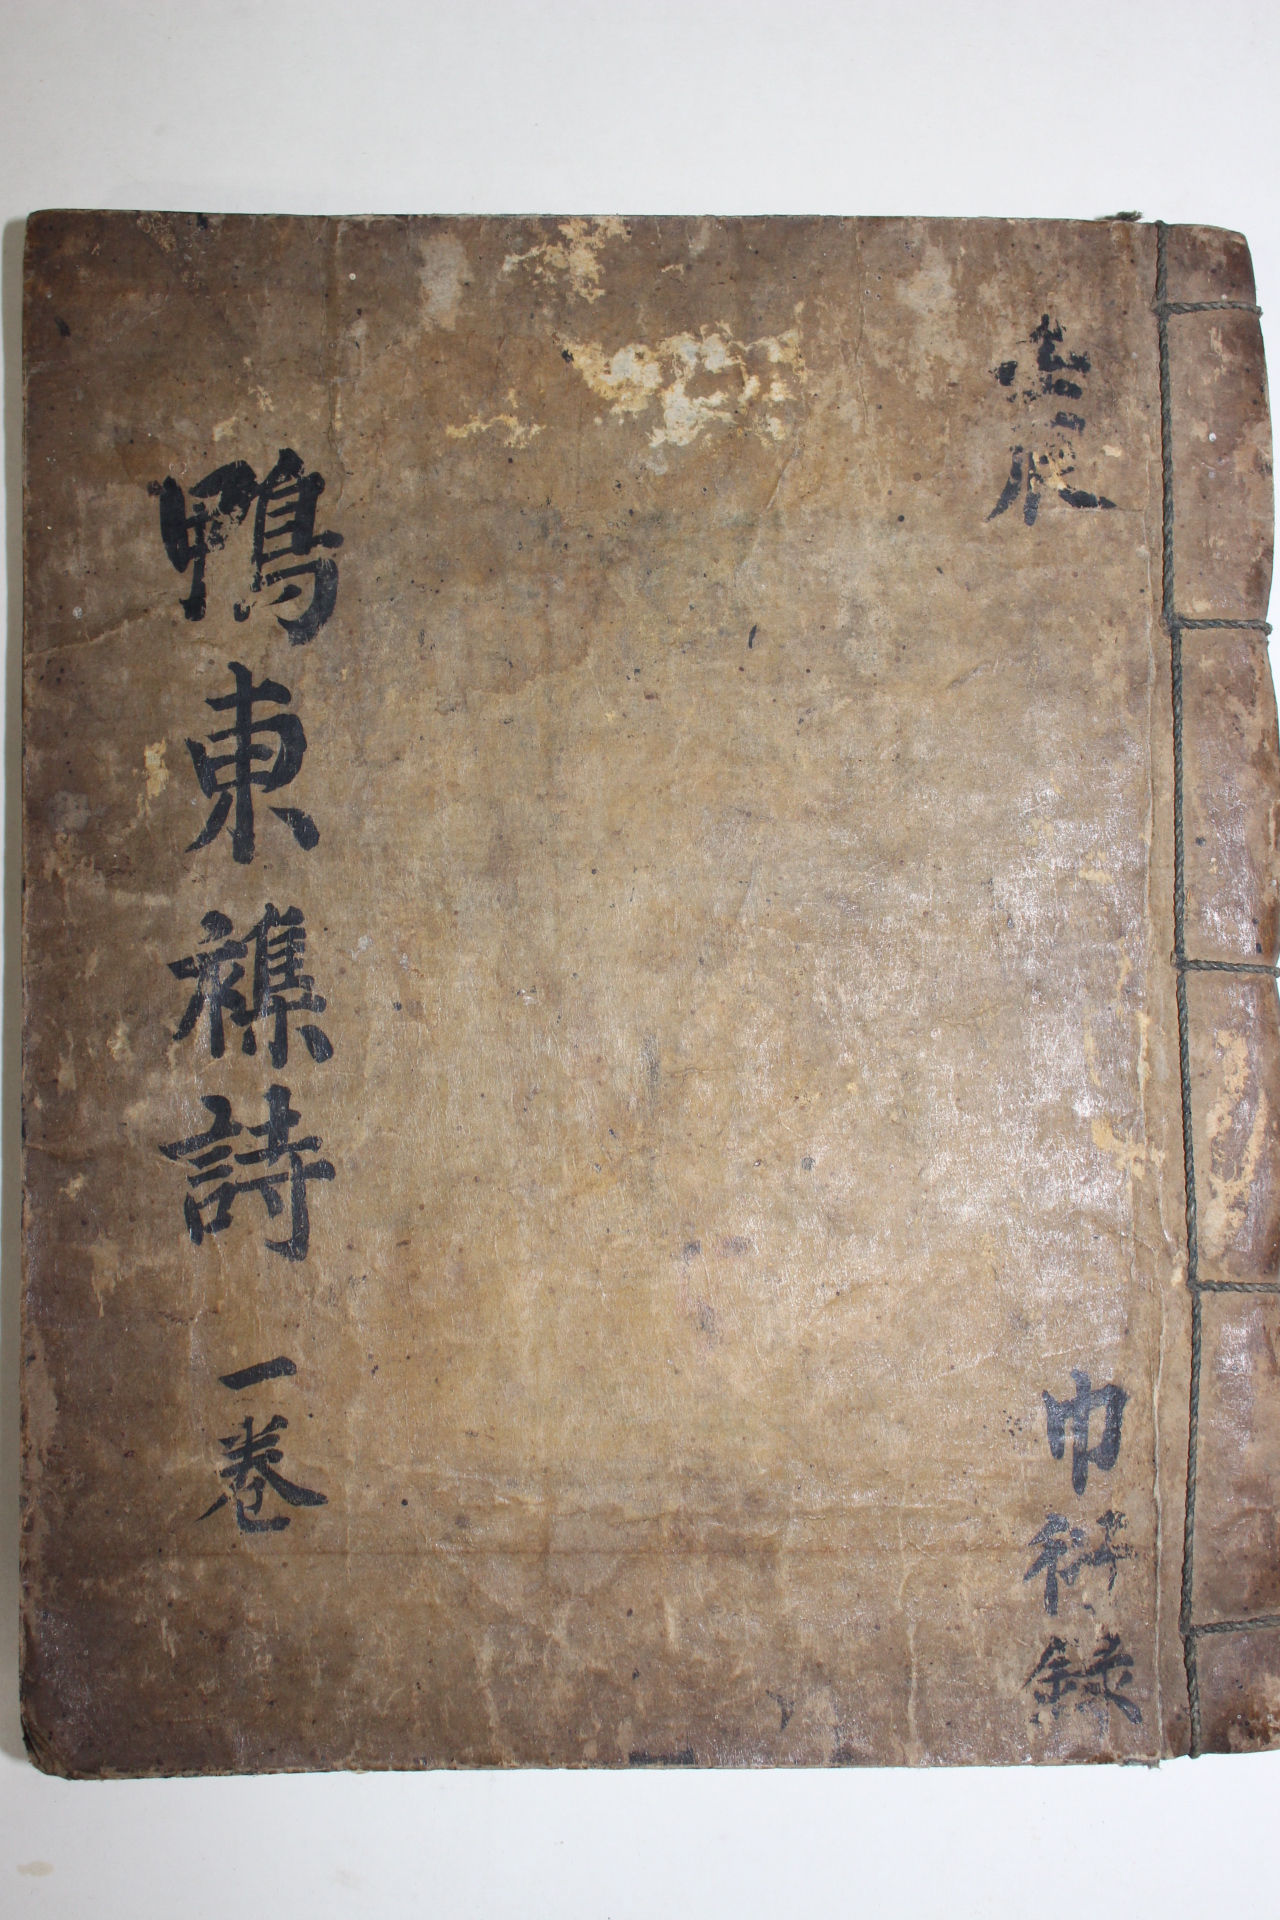 巾衍錄
鴨東襍詩 一卷